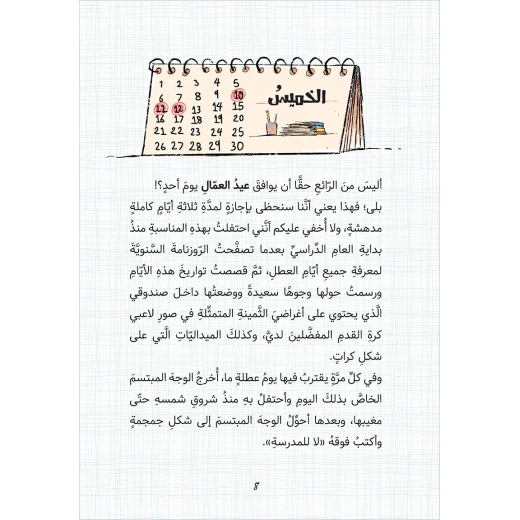 الخميسُ
1 2 3 4 5
6 7 8 9 10
11 12 13 14 15
16 17 18 19 20
21 22 23 24 25
26 27 28 29 30
أليسَ منَ الرّائعِ حقًّا أن يوافقَ عيدُ العمّالِ يومَ أحدٍ؟!
بلى؛ فهذا يعني أنَّنا سنحظى بإجازةٍ لمدَّةِ ثلاثةِ أيّامٍ كاملةٍ
مدهشةٍ، ولا أُخفي عليكم أنَّني احتفلتُ بهذهِ المناسبةِ منذُ
بدايةِ العامِ الدِّراسيِّ بعدما تصفَّحتُ الرّوزنامةَ السَّنويَّةَ
لمعرفةِ جميعِ أيّامِ العطلِ، ثمَّ قصصتُ تواريخَ هذهِ الأيّامِ
ورسمتُ حولها وجوهًا سعيدةً ووضعتُها داخلَ صندوقي
الَّذي يحتوي على أغراضيَ الثَّمينةِ المتمثِّلةِ في صورِ لاعبي
كرةِ القدمِ المفضَّلينَ لديَّ، وكذلكَ الميداليّاتِ الَّتي على
شكلِ كراتٍ.
وفي كلِّ مرَّةٍ يقتربُ فيها يومُ عطلةٍ ما، أُخرجُ الوجهَ المبتسمَ
الخاصَّ بذلكَ اليومِ وأحتفلُ بهِ منذُ شروقِ شمسهِ حتّى
مغيبها، وبعدها أحوِّلُ الوجهَ المبتسمَ إلى شكلِ جمجمةٍ
وأكتبُ فوقهُ «لا للمدرسةِ».
8